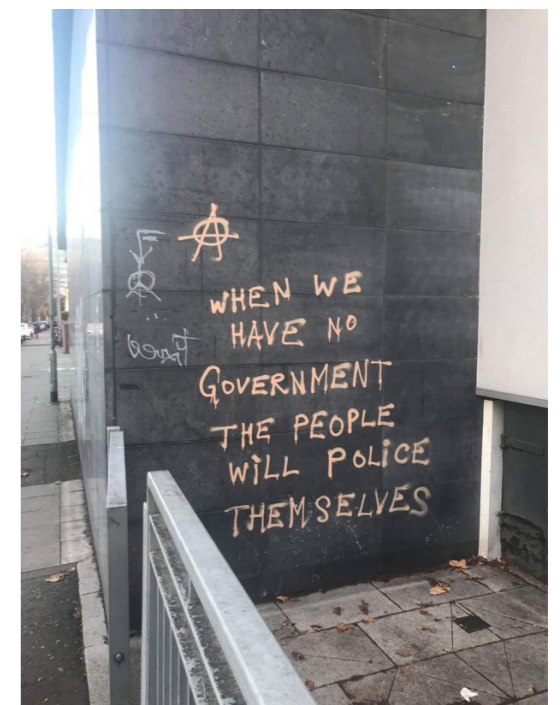 WHEN WE
HAVE NO
GOVERNMENT
THE PEOPLE
WILL POLICE
THEMSELVES